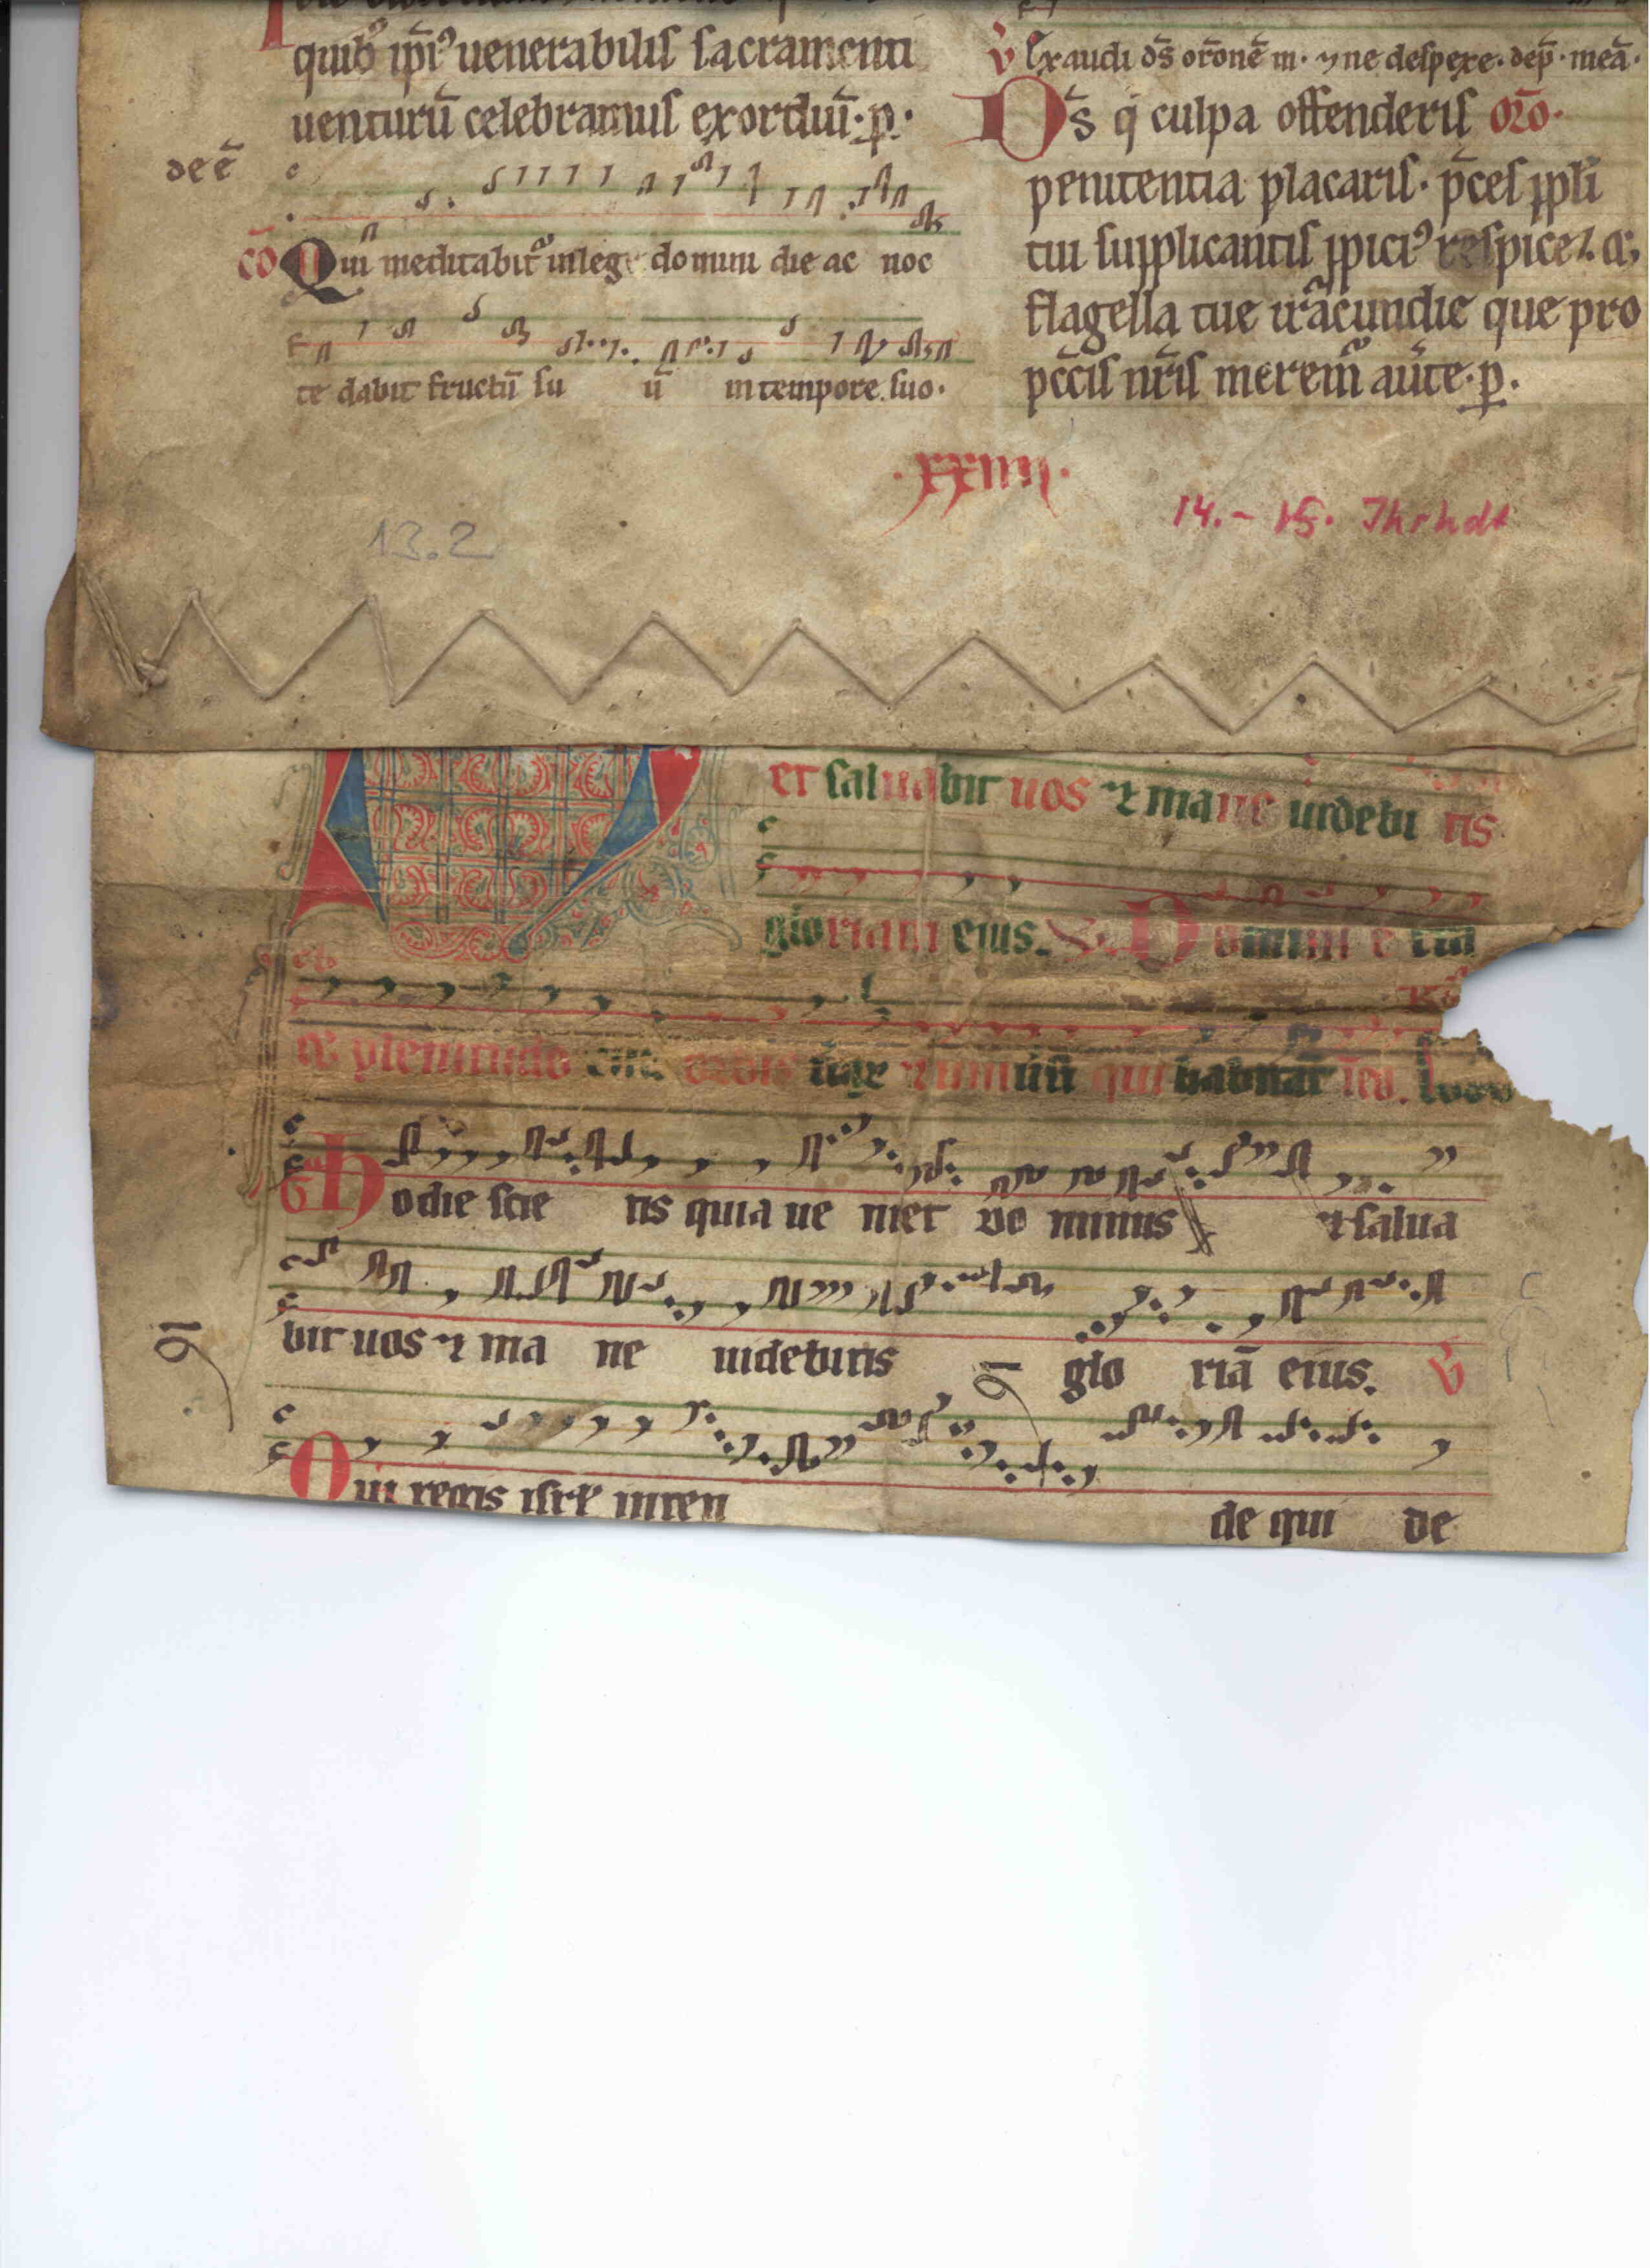 quib᷒ ip̄i᷒ uenerabilis sacramenti
uenturū celebramus exordiū. p.
de ē
cō Qui meditabit᷒ in lege domini die ac noc
te dabit fructū su ū in tempore suo.
v̄ Exaudi ds̄ orōnē m. ⁊ ne despexe. dep̄. meā.
Ds̄ q̄ culpa offenderis orō.
penitentia placaris. p̄ces ppl̄i
tui supplicantis ppici᷒ respice ⁊
flagella tue iracundie que pro
pccīs nr̄is meremᷣ auͤte. p.
.xxiiii.
14. - 15. Jhrhdt
13.2
et saluabit uos ⁊ mane uidebi tis
gloriam eius. Domini e
et plenitudo eius orbis ⁊ qui habitāt
Hodie scie tis quia ue niet do minus ⁊ salua
bit uos ⁊ ma ne uidebitis glo riā eius. V
Qui regis isrl̄ inten de qui de